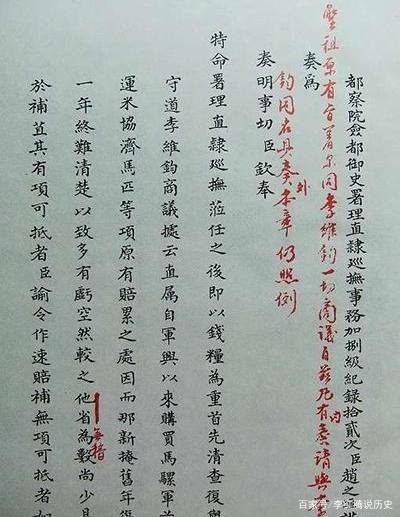 都察院僉都御史署理直隸巡撫事務加捌級紀錄拾貳次臣趙之
聖祖原有旨着尔同李維鈞一切商議自茲乃有內奏請與
奏為
奏明事切臣欽奉
奏本章仍照例
外
特命署理直隸巡撫蒞任之後即以錢糧為重首先清查復與
守道李維鈞商議據云直属自軍興以來購買馬騾軍
運米協濟馬匹等項原有賠累之處因而那新掩舊年復
一年終難清楚以致多有虧空然較之他省為數尚少
於補苴其有項可抵者臣諭令作速賠補無項可抵者
百家号/李腾说历史